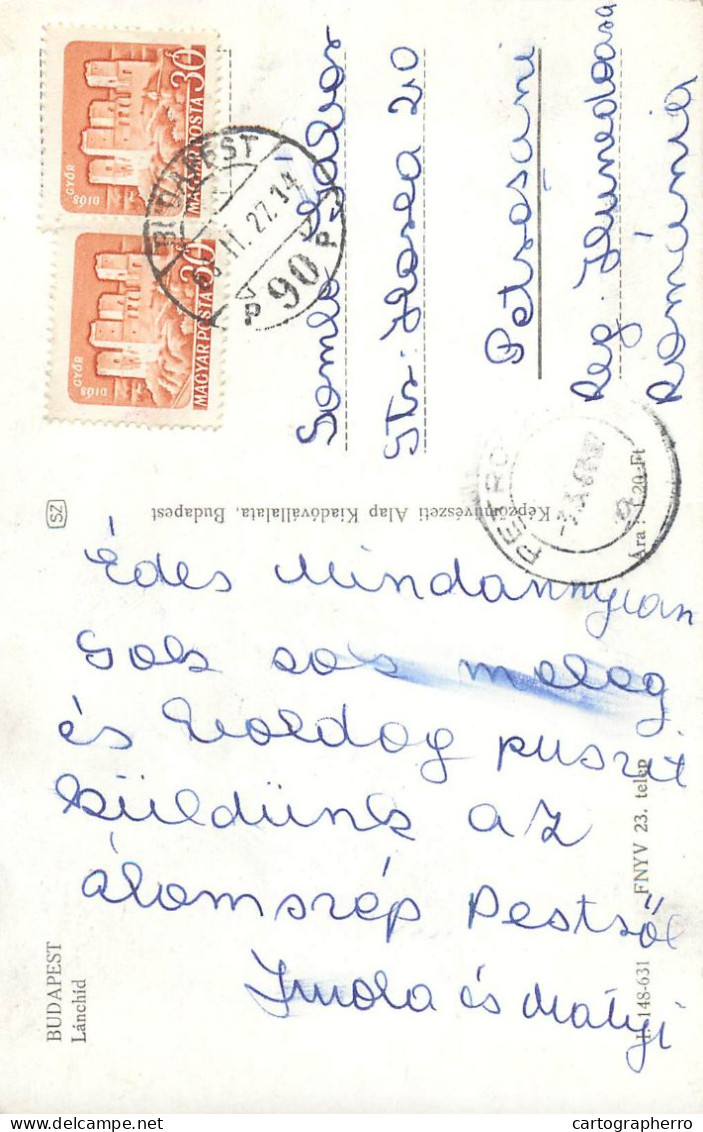 BUDAPEST
Lánchíd
Édes Mindannyian
Sok sok meleg
és boldog puszit
küldünk az
álomszép Pestről
Imola és Mátyi
SZ
Képzőművészeti Alap Kiadóvállalata, Budapest
Somló
Str: Hozea 20
Petroșani
Reg. Hunedoara
Románia
MAGYAR POSTA
30
DIÓSGYŐR
MAGYAR POSTA
30
DIÓSGYŐR
BUDAPEST
11.27.14
P 90 P
PETRO
Ára: 1.20 Ft
148-631 FNYV 23. telep
cartographerro